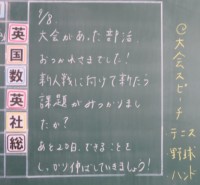 9/8.
大会があった部活、
おつかれさまでした!
新人戦に向けて新たな
課題がみつかりまし
たか?
あと20日、できることを
しっかり伸ばしていきましょう!
英
国
数
英
社
総
@大会スピーチ
テニス
野球
ハンド